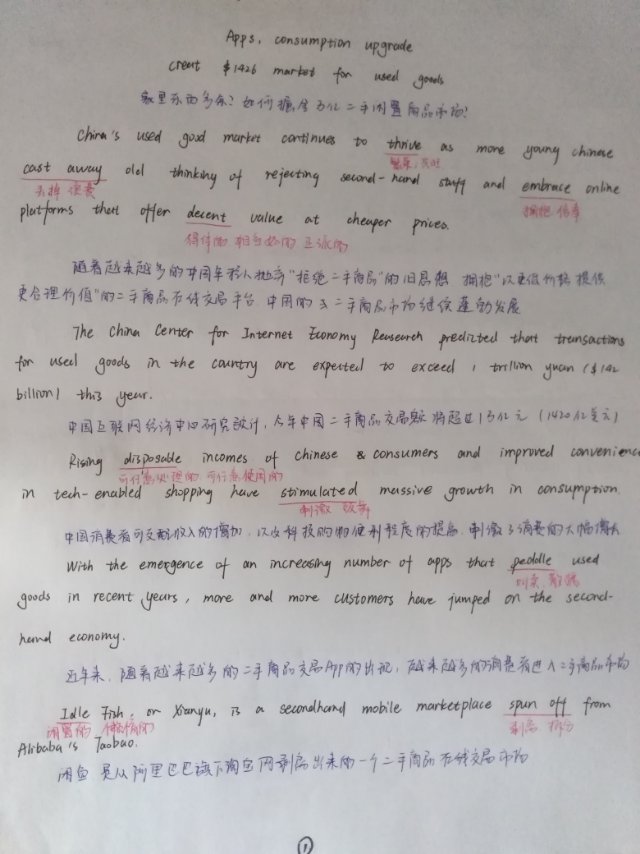 Apps, consumption upgrade
creat $142b market for used goods
家里东西多余? 如何掘金万亿二手闲置商品市场?
China's used good market continues to thrive as more young chinese
繁荣,
cast away old thinking of rejecting second-hand stuff and embrace online
丢掉 浪费 拥抱 信奉
platforms that offer decent value at cheaper prices.
得体的 相当好的 正派的
随着越来越多的中国年轻人抛弃"拒绝二手商品"的旧思想 拥抱"以更低价格提供
更合理价值"的二手商品在线交易平台 中国的 二手商品市场继续蓬勃发展
The China Center for Internet Economy Research predicted that transactions
for used goods in the country are expected to exceed 1 trillion yuan ($142
billion) this year.
中国互联网经济中心研究预计, 今年中国二手商品交易额将超过1万亿元 (1420亿美元)
Rising disposable incomes of chinese & consumers and improved convenience
可任意处理的 可任意使用的
in tech-enabled shopping have stimulated massive growth in consumption
刺激 鼓舞
中国消费者可支配收入的增加, 以及科技购物便利程度的提高, 刺激了消费的大幅增长
With the emergence of an increasing number of apps that peddle used
叫卖
goods in recent years, more and more customers have jumped on the second-
hand economy.
近年来, 随着越来越多的二手商品交易App的出现, 越来越多的消费者进入二手商品市场
Idle Fish, or Xianyu, is a secondhand mobile marketplace spun off from
闲置的 懒惰的 剥离 拆分
Alibaba's Taobao.
闲鱼 是从阿里巴巴旗下淘宝网剥离出来的一个二手商品在线交易市场
1